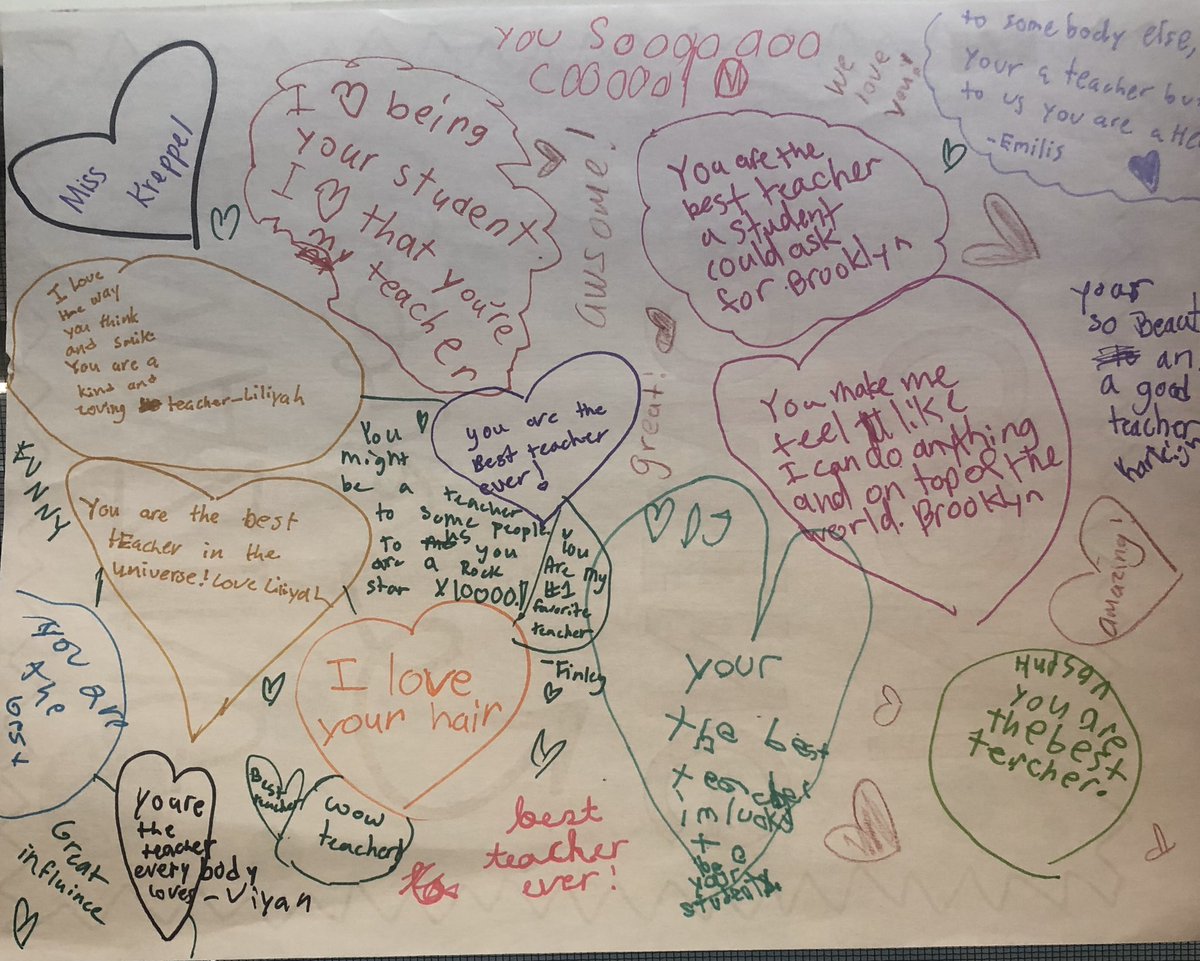 Miss
Kreppel
I ♡ being
your student
I ♡ that you're
my teacher
You Soooo ooo
COOOOOl
We
love
you!
to somebody else,
your a teacher bu
to us you are a He
-Emilis
awsome!
You are the
best teacher
a student
could ask
for. Brooklyn
I love
the way
you think
and smile
You are a
kind and
loving teacher-Liliyah
great!
your
so Beaut
an
a good
teacher
FUNNY
You
might
be a teacher
to some people
To us you
are a Rock
star X10000!
you are the
Best teacher
ever!
You make me
feel like
I can do anything
and on top of the
world. Brooklyn
You are the best
tEacher in the
universe! Love Liliyah
You
Are my
#1
favorite
teacher
-Finley
DJ
your
the best
teacher
im lucky
t
be a
your
student
amazing!
You are
the
Best
I love
your hair
Hudson
you are
the best
tercher.
Best
teacher
wow
teacher
youre
the
teacher
every body
loves -Viyan
Great
influince
best
teacher
ever!